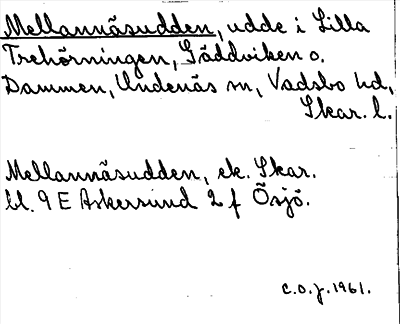 Mellannäsudden, udde i Lilla
Trehörningen, Gäddviken o.
Dammen, Undenäs sn, Vadsbo hd,
Skar. l.
Mellannäsudden, ek. Skar.
bl. 9 E Askersund 2 f Ösjö.
C.O.J. 1961.